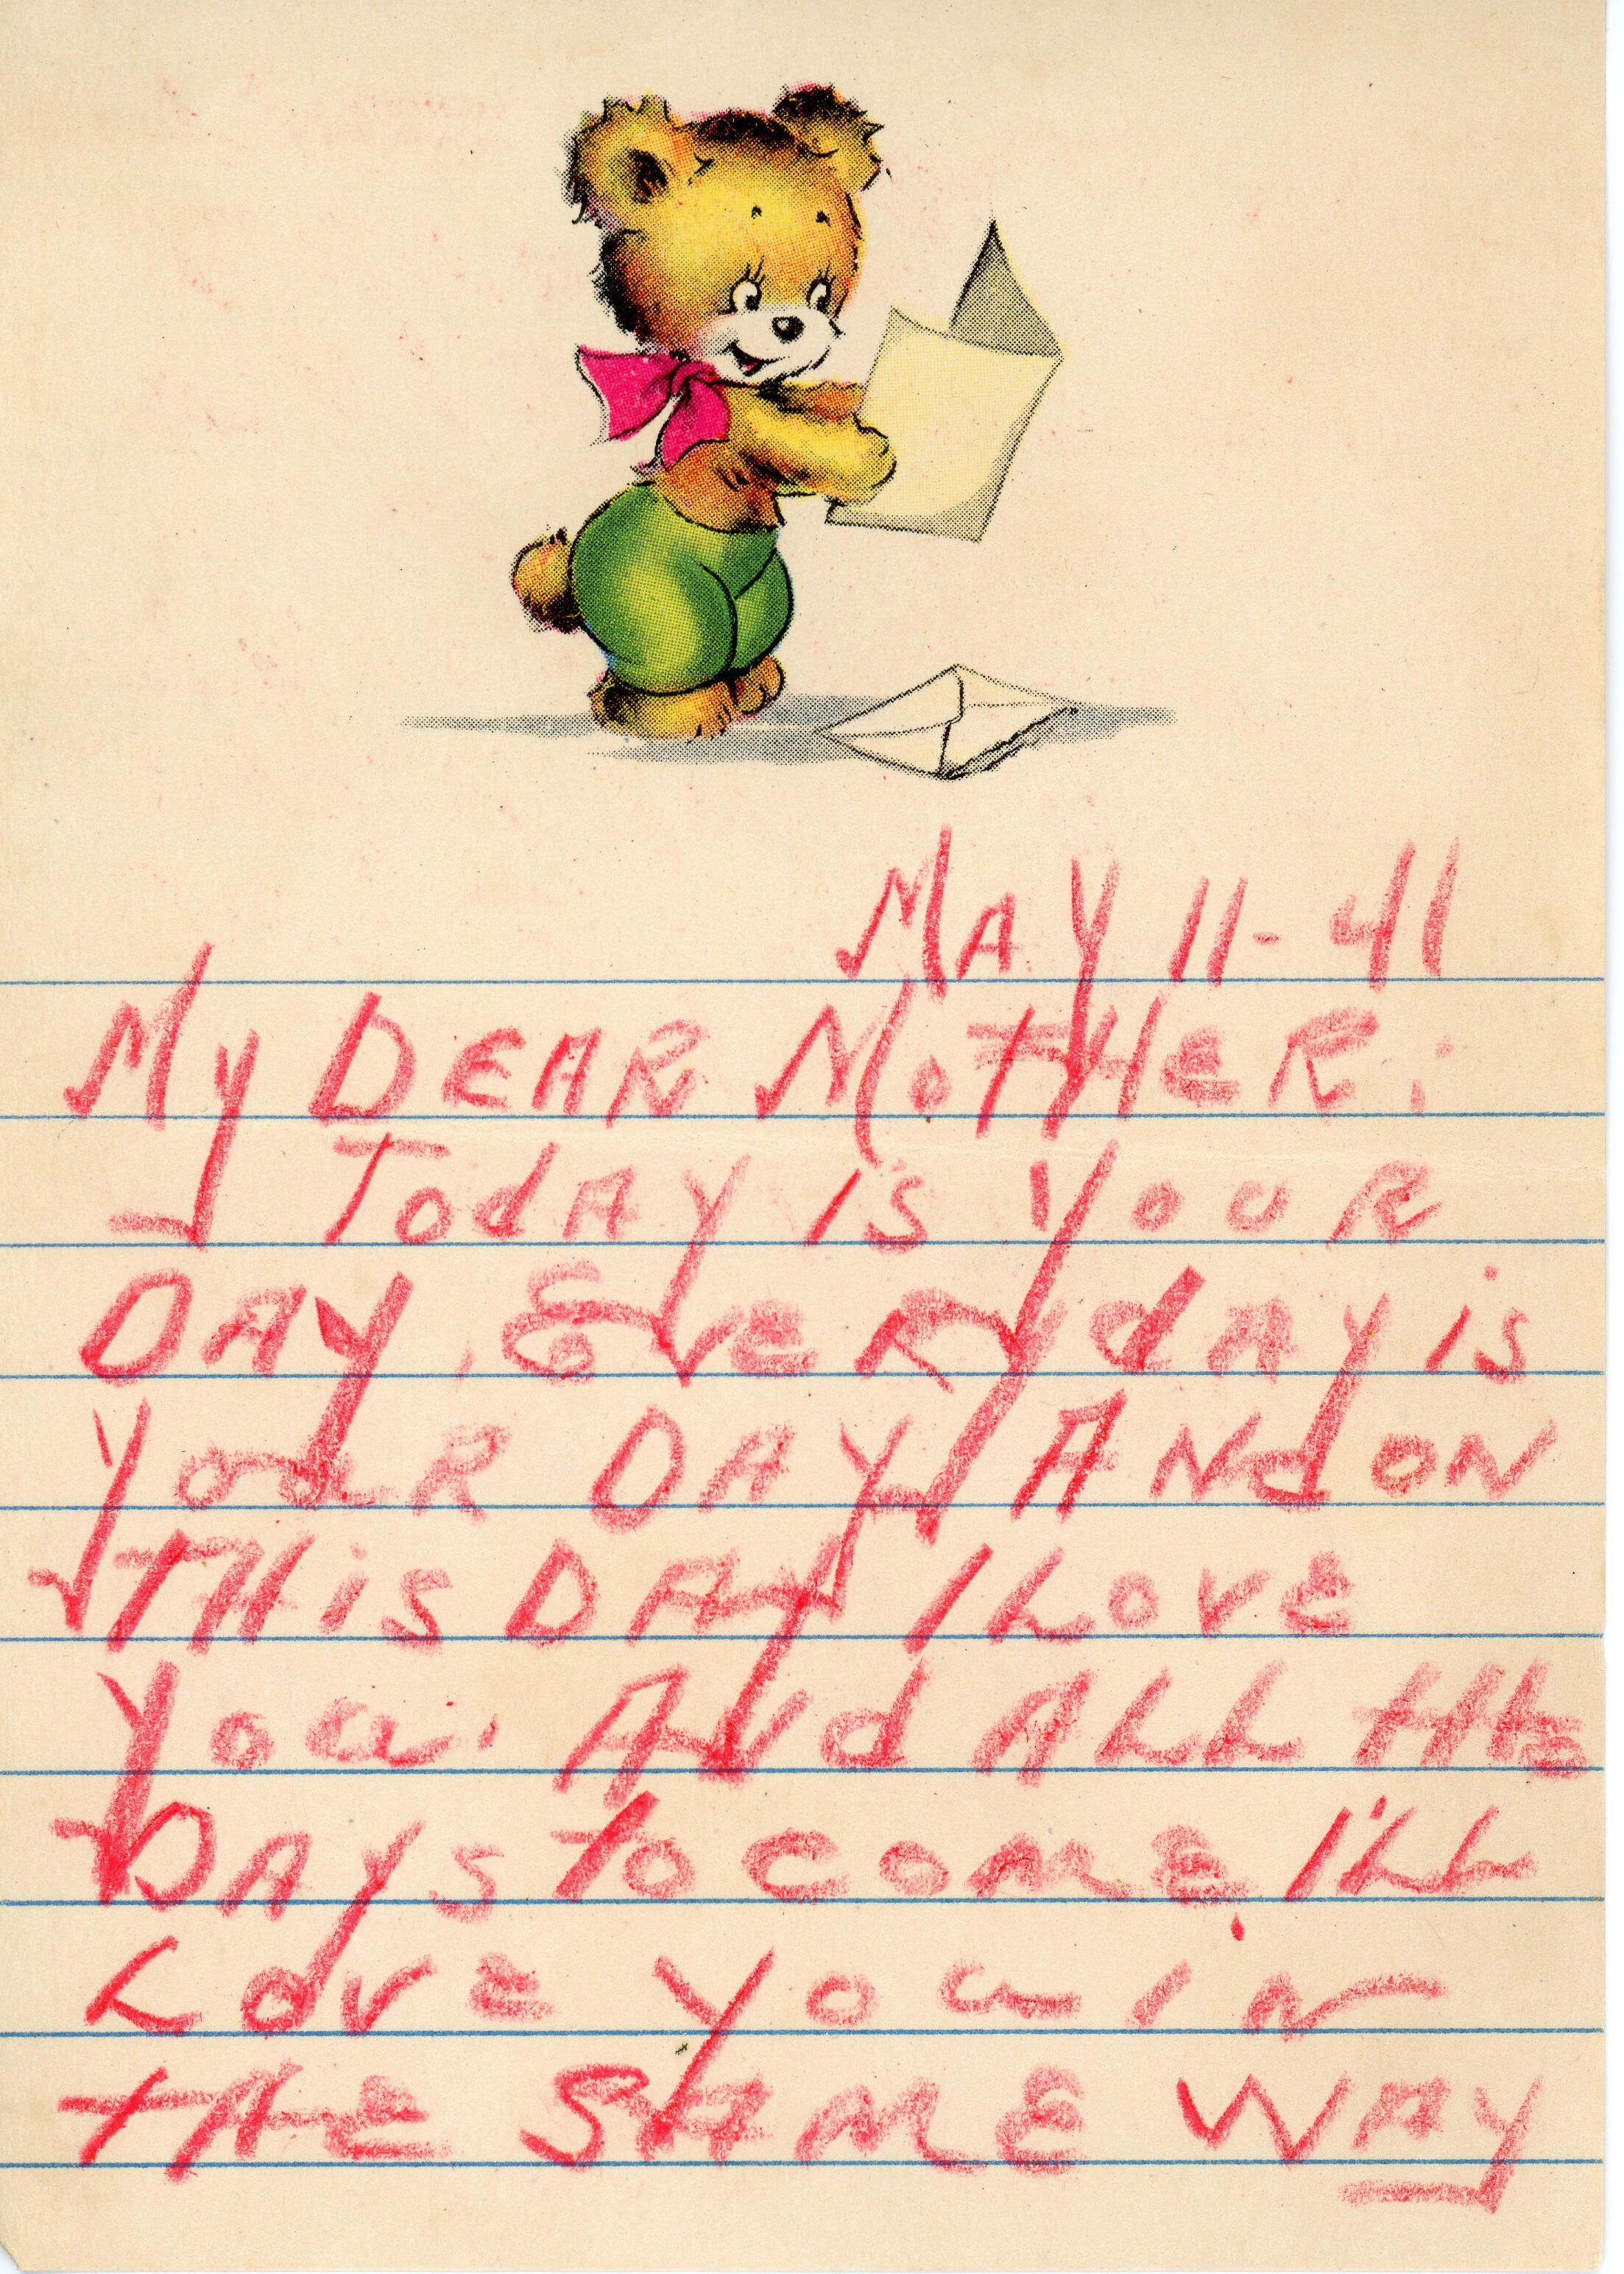 MAY 11-41
My DEAR MOTHER:
TodAY is YOUR
DAY. EVERYdAY is
YOUR DAY ANd ON
THis DAY I LOVE
You. ANd ALL tHE
DAYs TO COME I'LL
LOVE You iN
tHE SAME WAY